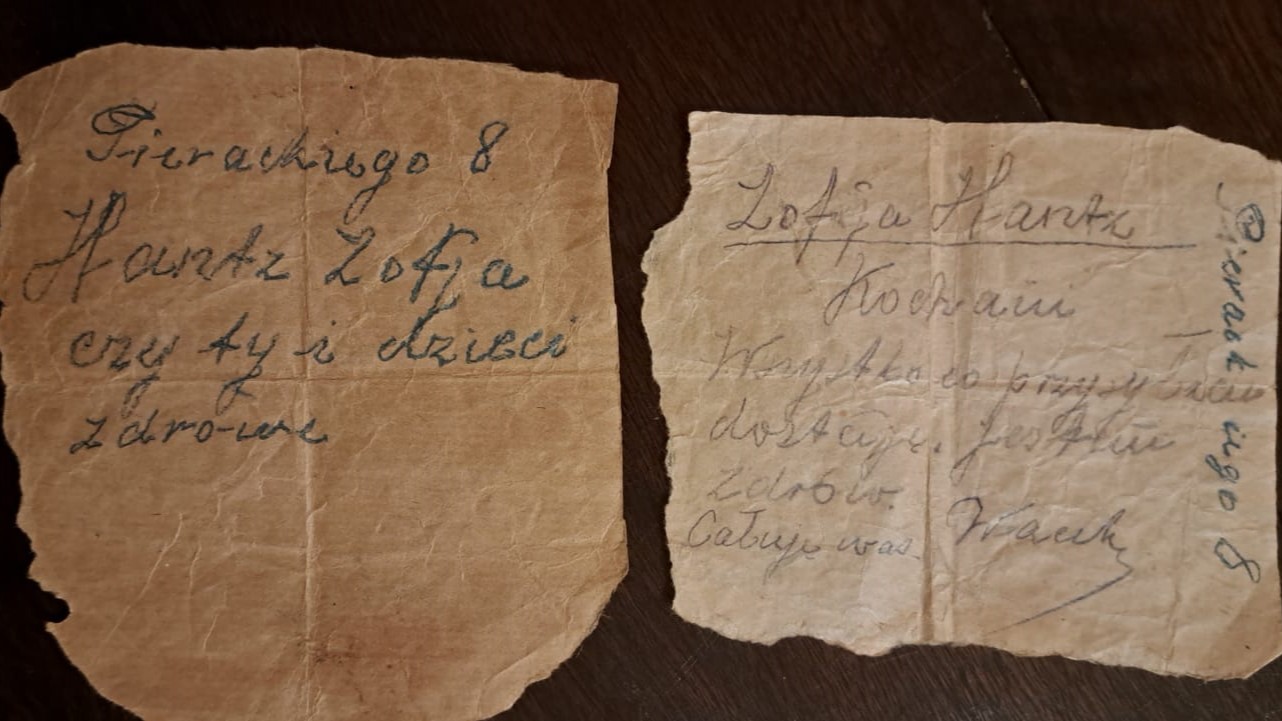 Pierackiego 8
Hantz Zofja
czy ty i dzieci
zdrowe
Zofija Hantz
Kochani
Wszystko co przysyłacie
dostaję. Jestem
zdrów.
Całuję was Wacek
Pierackiego 8